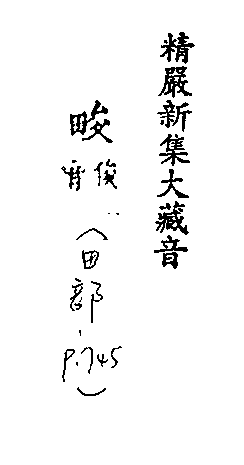 精嚴新集大藏音
畯
俊音
(田部、P.745)